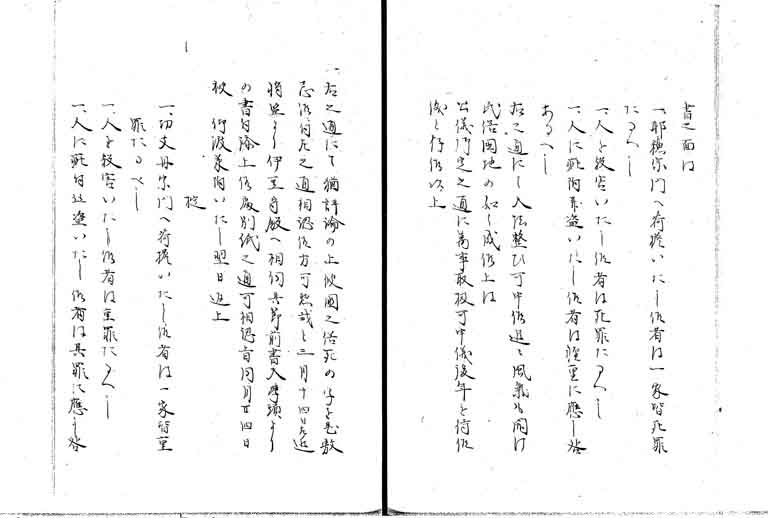 書之面は
一、耶穂宗門へ荷擔いたし候者は一家皆死罪
たるへし
一、人を殺害いたし候者は死罪たるへし
一、人に疵付并盗いたし候者は軽重に應し咎
あるへし
右之通にし人法整ひ可申候追々風氣も開け
氏俗國地の如く成候上は
公儀御定之通に萬事取扱可申儀後年と待候
儀と存候以上
一、右之通にて猶評論の上彼國之俗死の字を
忌候付左之通相認候方可然哉と三月十四日
伊豆守殿へ相伺其節前書入學頭より
の書付上候處別紙之通可相認旨同月廿四日
被 仰渡承付いたし翌日返上
掟
一、切支丹宗門へ荷擔いたし候者は一家皆重
罪たるへし
一、人を殺害いたし候者は重罪たるへし
一、人に疵付又は盗いたし候者は其罪に應し咎